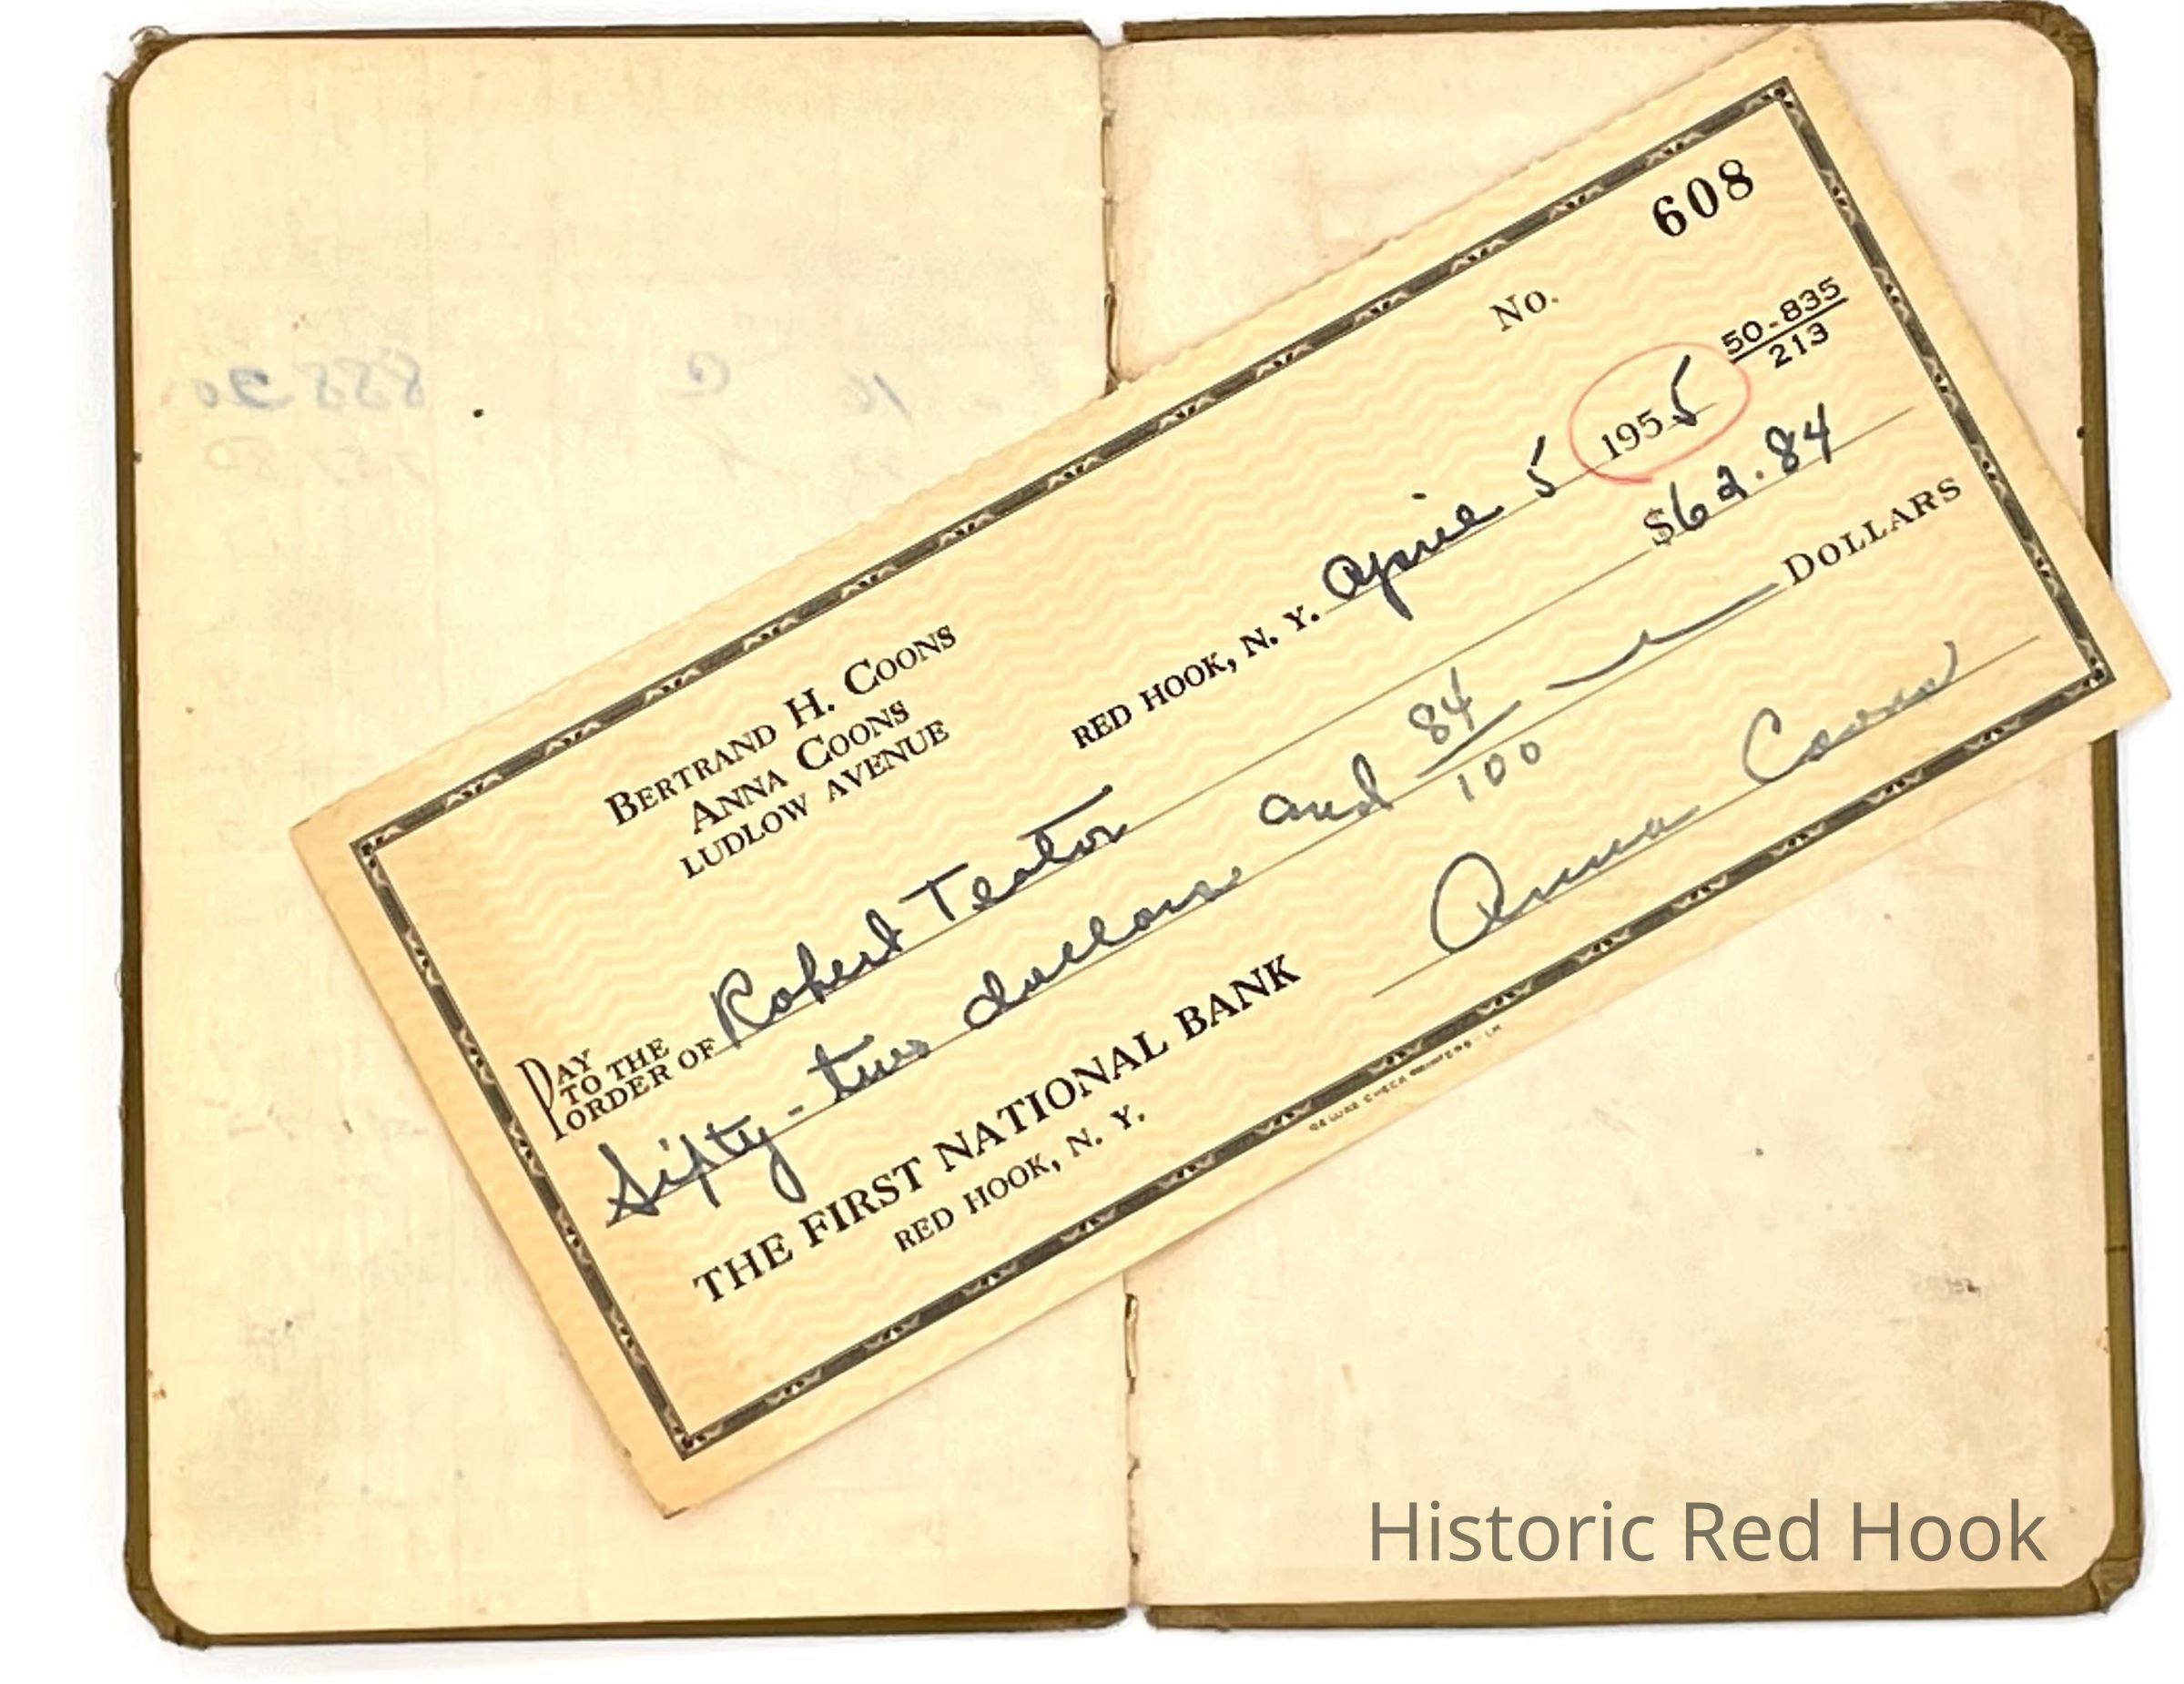 608
No.
50-835
213
BERTRAND H. COONS
ANNA COONS
LUDLOW AVENUE
RED HOOK, N. Y. April 5 1955
PAY TO THE ORDER OF Robert Teator $62.84
Sixty-two dollars and 84/100 DOLLARS
THE FIRST NATIONAL BANK
RED HOOK, N. Y.
Anna Coons
Historic Red Hook